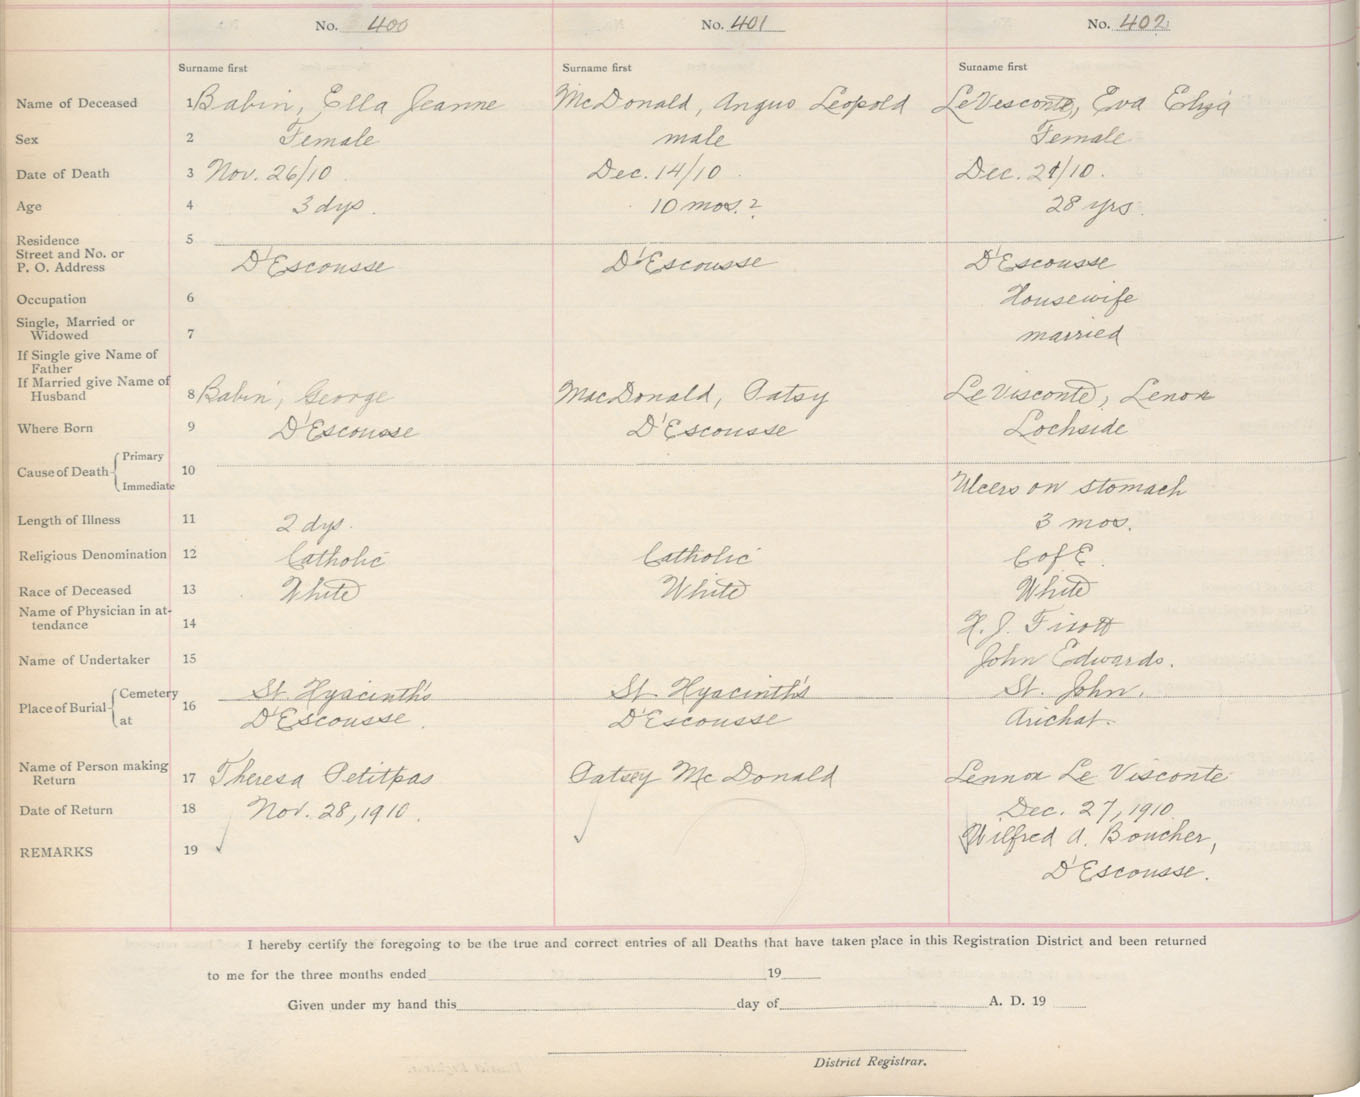 No. 400 No. 401 No. 402
Surname first Surname first Surname first
Name of Deceased 1 Babin, Ella Jeanne McDonald, Angus Leopold LeVesconte, Eva Eliza
Sex 2 Female male Female
Date of Death 3 Nov. 26/10 Dec. 14/10 Dec. /10.
Age 4 3 dys. 10 mos. ? 28 yrs.
Residence 5
Street and No. or
P. O. Address D'Escousse D'Escousse D'Escousse
Occupation 6 Housewife
Single, Married or
Widowed 7 married
If Single give Name of
Father
If Married give Name of
Husband 8 Babin, George MacDonald, Patsy LeVisconte, Lenox
Where Born 9 D'Escousse D'Escousse Lochside
Primary
Cause of Death 10
Immediate Ulcers on stomach
Length of Illness 11 2 dys. 3 mos.
Religious Denomination 12 Catholic Catholic C of E.
Race of Deceased 13 White White White
Name of Physician in at-
tendance 14 J.
Name of Undertaker 15 John Edwards.
Cemetery St. Hyacinth's St. Hyacinth's St. John,
Place of Burial 16
at D'Escousse. D'Escousse Arichat.
Name of Person making
Return 17 Theresa Petitpas Patsey McDonald Lennox Le Visconte
Date of Return 18 Nov. 28, 1910. Dec. 27, 1910
REMARKS 19 Wilfred A. Boucher,
D'Escousse.
I hereby certify the foregoing to be the true and correct entries of all Deaths that have taken place in this Registration District and been returned
to me for the three months ended 19
Given under my hand this day of A. D. 19
District Registrar.